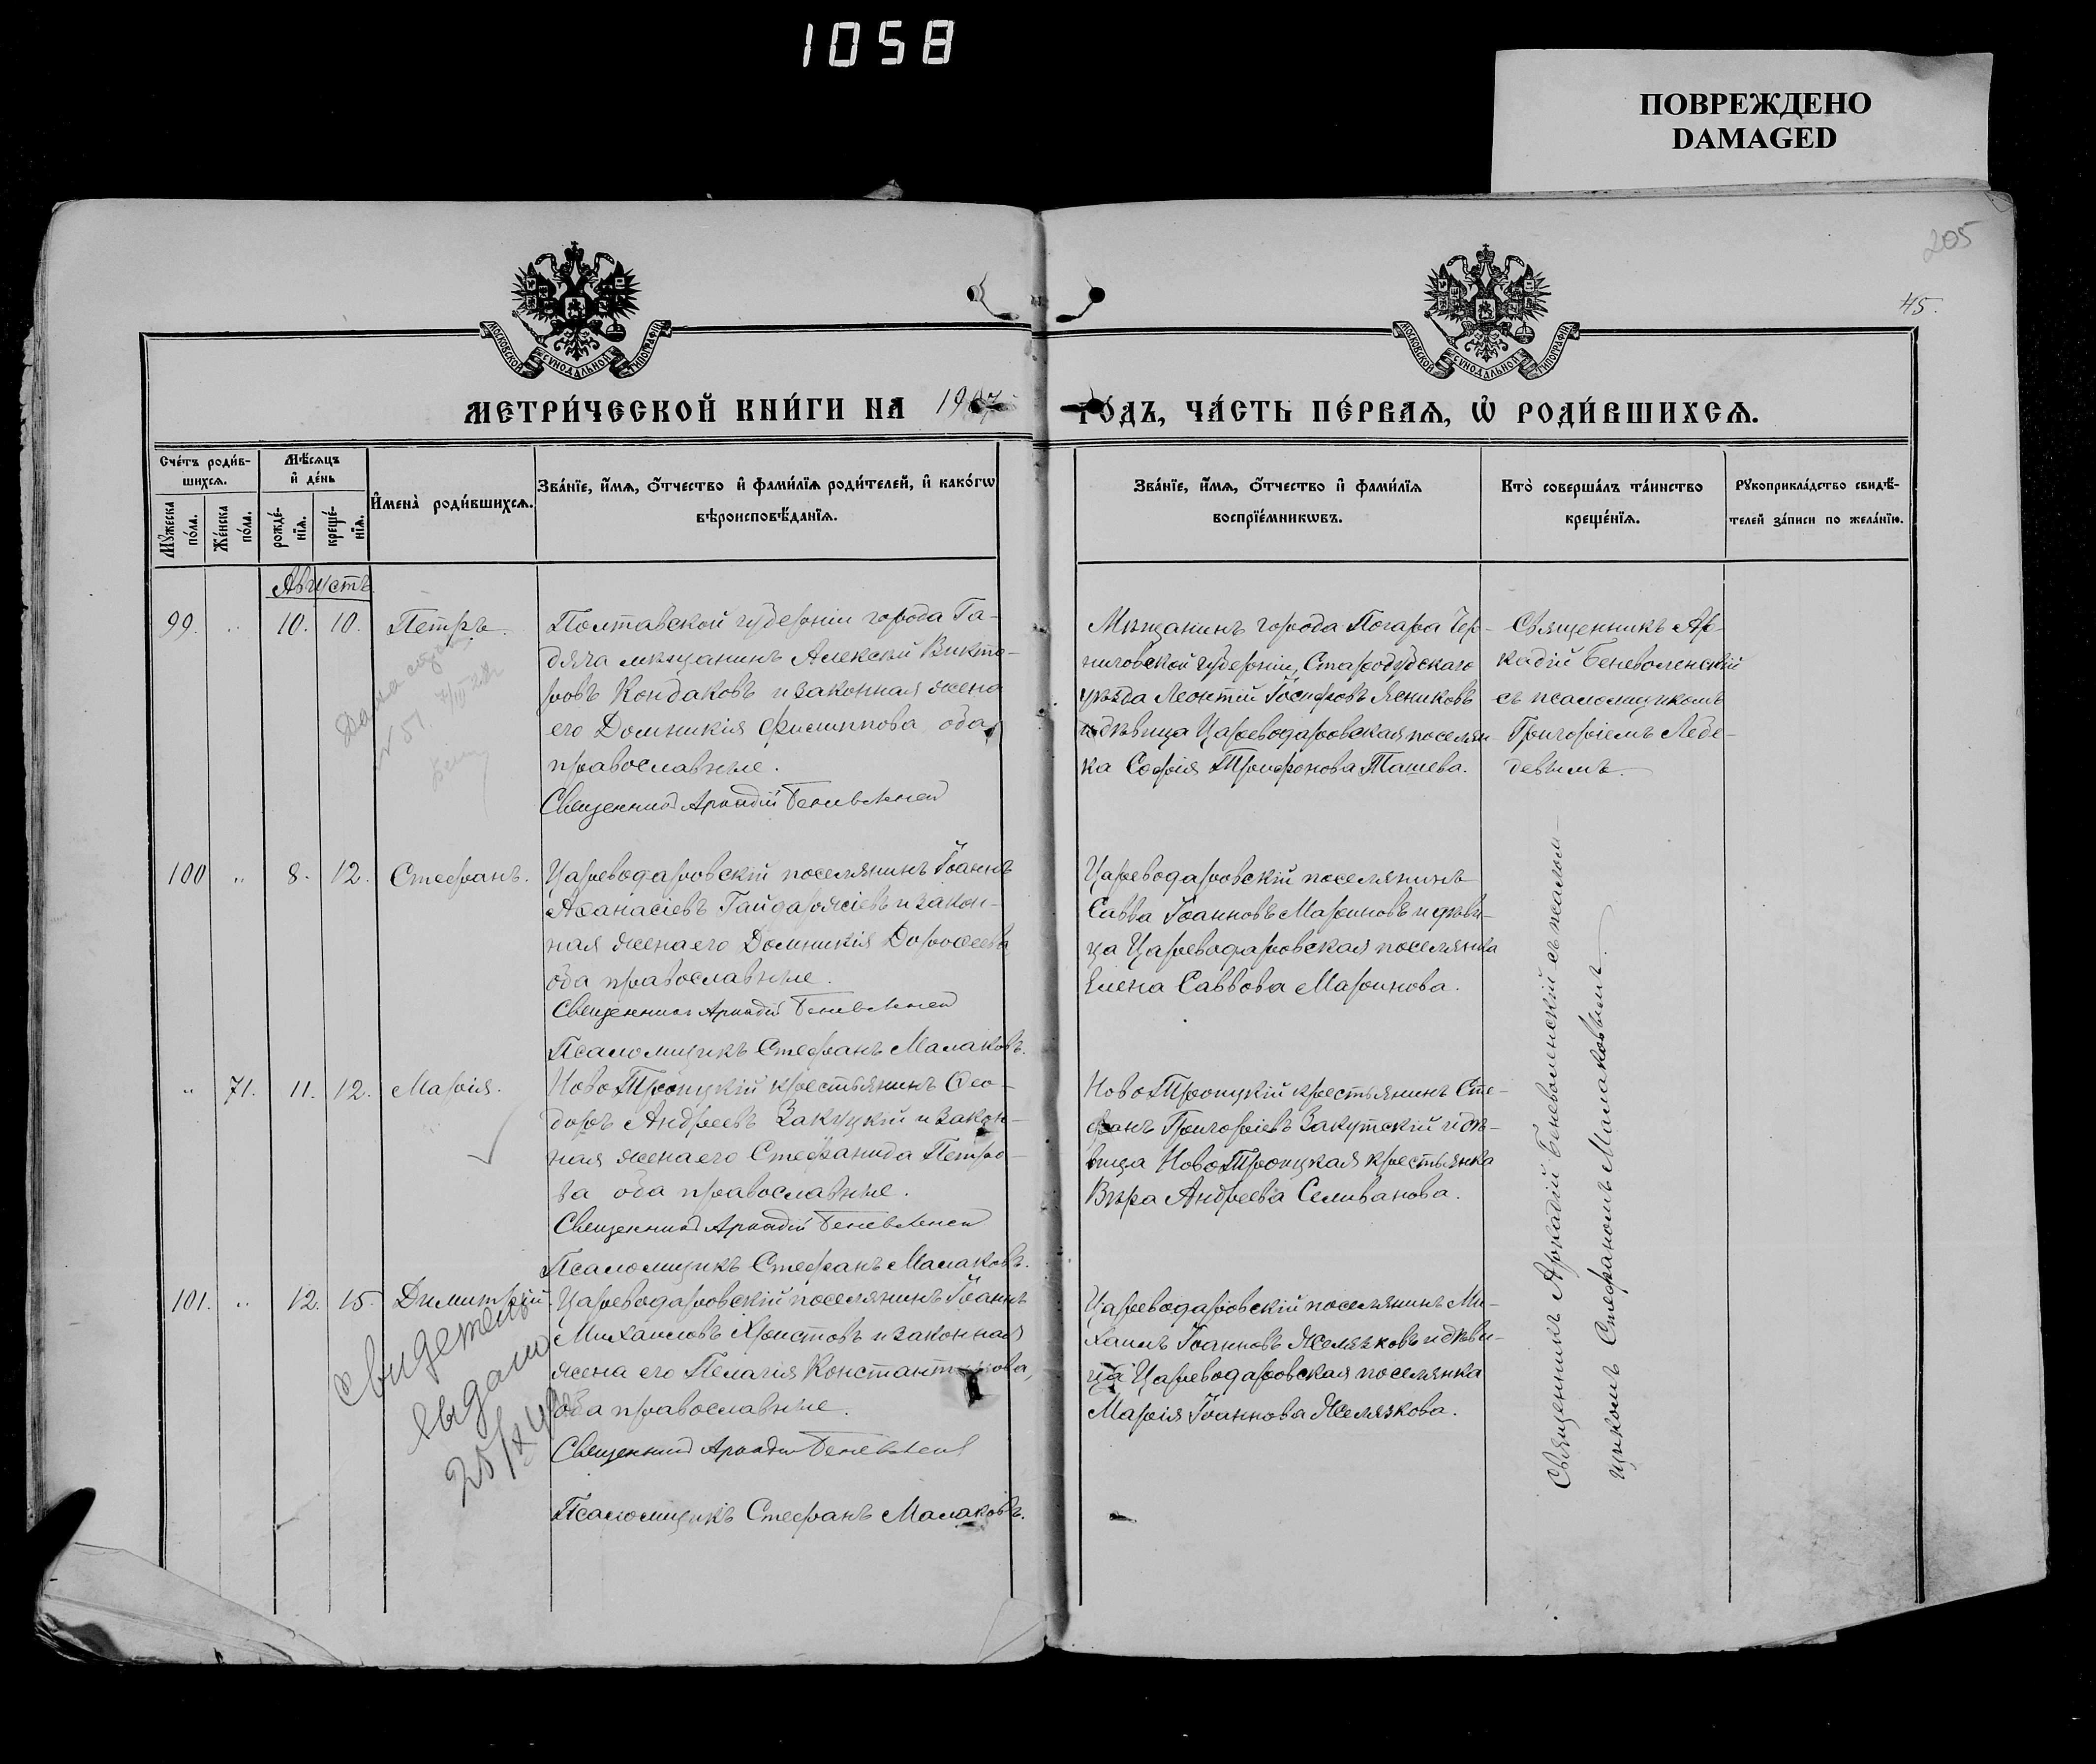 1058
ПОВРЕЖДЕНО
DAMAGED
205
45.
МОСКОВСКОЙ СУНОДАЛЬНОЙ ТИПОГРАФІИ
МОСКОВСКОЙ СУНОДАЛЬНОЙ ТИПОГРАФІИ
МЕТРИ́ЧЕСКОЙ КНИ́ГИ НА 1907 ГО́ДЪ, ЧА́СТЬ ПЕ́РВАѦ, Ѡ҆ РОДИ́ВШИХСѦ.
Сче́тъ роди́в-
шихсѧ.
Мѣ́сѧцъ
и҆ де́нь
Мꙋ́жеска
по́ла.
Же́нска
по́ла.
рожде́-
нїѧ.
креще́-
нїѧ.
И҆мена̀ роди́вшихсѧ.
Зва́нїе, и҆́мѧ, ѻ҆́тчество и҆ фами́лїѧ роди́телей, и҆ како́гѡ
вѣроисповѣ́данїѧ.
Зва́нїе, и҆́мѧ, ѻ҆́тчество и҆ фами́лїѧ
воспрїе́мникѡвъ.
Кто̀ соверша́лъ та́инство
креще́нїѧ.
Рꙋкоприкла́дство свидѣ́-
телей за́писи по жела́нїю.
Августъ
99. „ 10. 10. Петръ.
Полтавской губерніи города Га-
дяча мѣщанинъ Алексѣй Викто-
ровъ Кондаковъ и законная жена
его Домникія Филиппова, оба
православные.
Священникъ Аркадій Беневоленскій
Мѣщанинъ города Погара Чер-
ниговской губерніи, Стародубскаго
уѣзда Леонтій Іосифовъ Ясниковъ
и дѣвица Цареводаровская поселян-
ка Софія Трифонова Ташева.
Священникъ Ар-
кадій Беневоленскій
съ псаломщикомъ
Григоріемъ Лебе-
девымъ.
Дана
100 „ 8. 12. Стефанъ.
Цареводаровскій поселянинъ Іоаннъ
Аѳанасіевъ Гайдаржіевъ и закон-
ная жена его Домникія Дороѳеева,
оба православные.
Священникъ Аркадій Беневоленскій
Псаломщикъ Стефанъ Малаковъ.
Цареводаровскій поселянинъ
Савва Іоанновъ Мариновъ и дѣви-
ца Цареводаровская поселянка
Елена Саввова Маринова.
„ 71. 11. 12. Марія.
Ново Троицкій крестьянинъ Ѳео-
доръ Андреевъ Закуцкій и закон-
ная жена его Стефанида Петро-
ва оба православные.
Священникъ Аркадій Беневоленскій
Псаломщикъ Стефанъ Малаковъ.
Ново Троицкій крестьянинъ Сте-
фанъ Григоріевъ Закутскій и дѣ-
вица Ново Троицкая крестьянка
Вѣра Андреева Селиванова.
101. „ 12. 15. Димитрій.
Цареводаровскій поселянинъ Іоаннъ
Михаиловъ Христовъ и законная
жена его Пелагія Константинова,
оба православные.
Священникъ Аркадій Беневоленскій
Псаломщикъ Стефанъ Малаковъ.
Цареводаровскій поселянинъ Ми-
хаилъ Іоанновъ Желязковъ и дѣви-
ца Цареводаровская поселянка
Марія Іоаннова Желязкова.
Священникъ Аркадій Беневоленскій съ псалом-
щикомъ Стефаномъ Малаковымъ.
свидетел
выдано